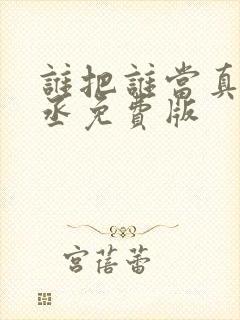 誰把誰當真
丞免費版
宮蓓蕾